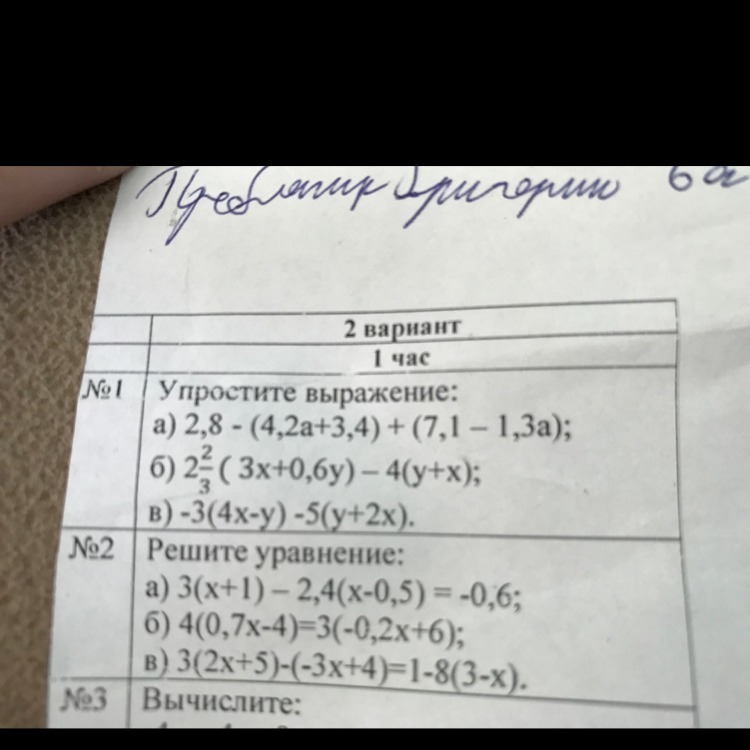 Григорий 6а
2 вариант
1 час
№1 Упростите выражение:
а) 2,8 - (4,2а+3,4) + (7,1 – 1,3а);
б) 2 2/3 ( 3х+0,6у) – 4(у+х);
в) -3(4х-у) -5(у+2х).
№2 Решите уравнение:
а) 3(х+1) – 2,4(х-0,5) = -0,6;
б) 4(0,7х-4)=3(-0,2х+6);
в) 3(2х+5)-(-3х+4)=1-8(3-х).
№3 Вычислите: